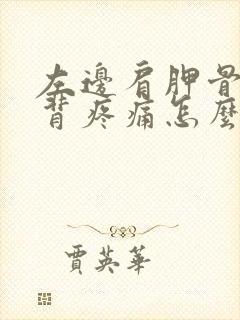 左邊肩胛骨
背疼痛怎麼
賈英華